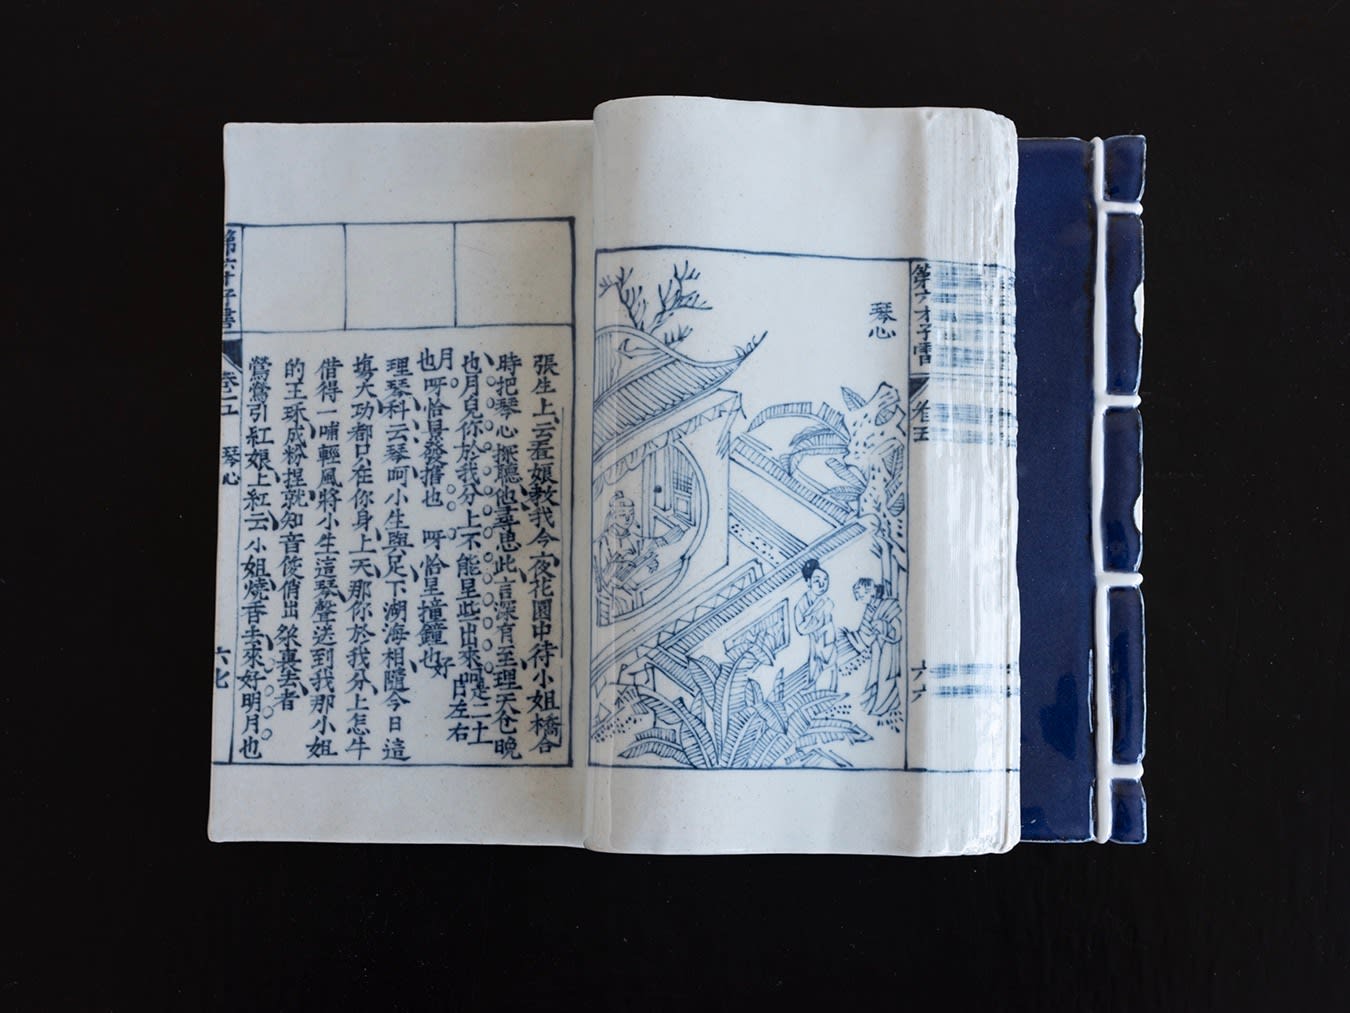 琴心
第六才子書 卷五 六六
張生上云看娘教我今夜花園中待小姐橋合
時把琴心探聽他尋思此言深有至理天色晚
也月兒你於我分上不能早些出來呵是二十日左右
月也呀恰景發擂也呀恰早撞鐘也好
理琴科云琴呵小生與足下湖海相隨今日這
塲大功都只在你身上天那你於我分上怎生
借得一輕風將小生這琴聲送到我那小姐
的王琢成粉捏就知音俊俏出去者
鶯鶯引紅娘上紅云小姐燒香去來好明月也
第六才子書 卷二 琴心 六七